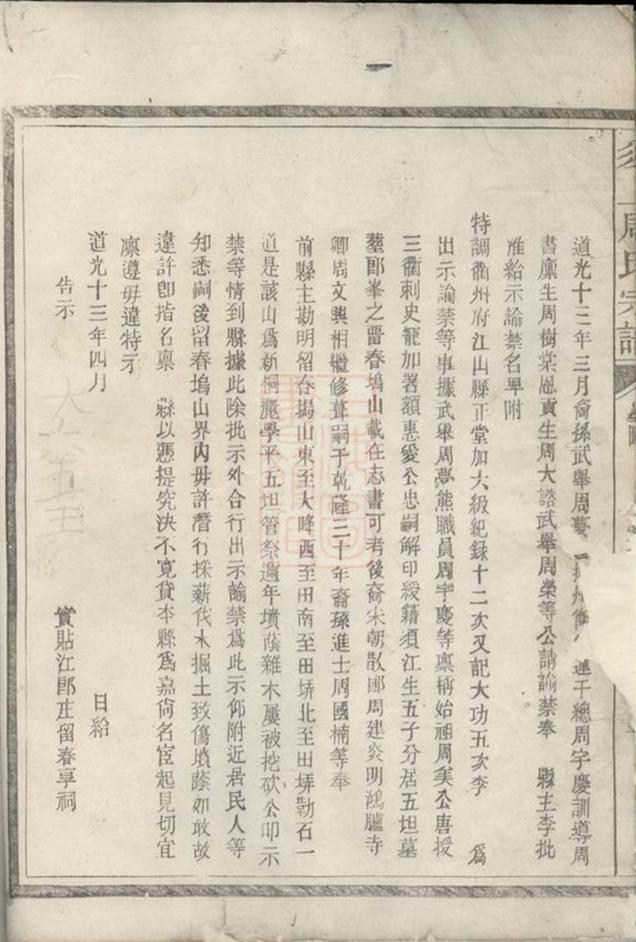 周氏宗譜
道光十三年三月裔孫武舉周夢 連千總周宇慶訓導周
書廩生周樹棠恩貢生周大諮武舉周榮等公請諭禁奉 縣主李批
准給示諭禁名畢附
特調衢州府江山縣正堂加六級紀錄十二次又記大功五次李 為
出示諭禁等事據武舉周夢熊職員周宇慶等禀稱始祖周美公唐授
三衢刺史寵加署額惠愛公忠嗣解印綬籍須江生五子分居五坦墓
塟郎峯之畱春塢山載在志書可考後裔宋朝散郎周建炎明鴻臚寺
卿周文興相繼修葺嗣于乾隆三十年裔孫進士周國楠等奉
前縣主勘明留春塢山東至大降西至田南至田塝北至田塝勒石一
道是該山為新桐麗學平五坦管祭邇年墳蔭雜木屢被挖砍公叩示
禁等情到縣據此除批示外合行出示諭禁為此示仰附近居民人等
知悉嗣後留春塢山界內毋許潛行採薪伐木掘土致傷墳蔭如敢故
違許卽指名禀 縣以憑提究決不寬貸本縣為嘉尚名宦起見切宜
凜遵毋違特示
道光十三年四月 日給
告示 實貼江郎庄留春享祠